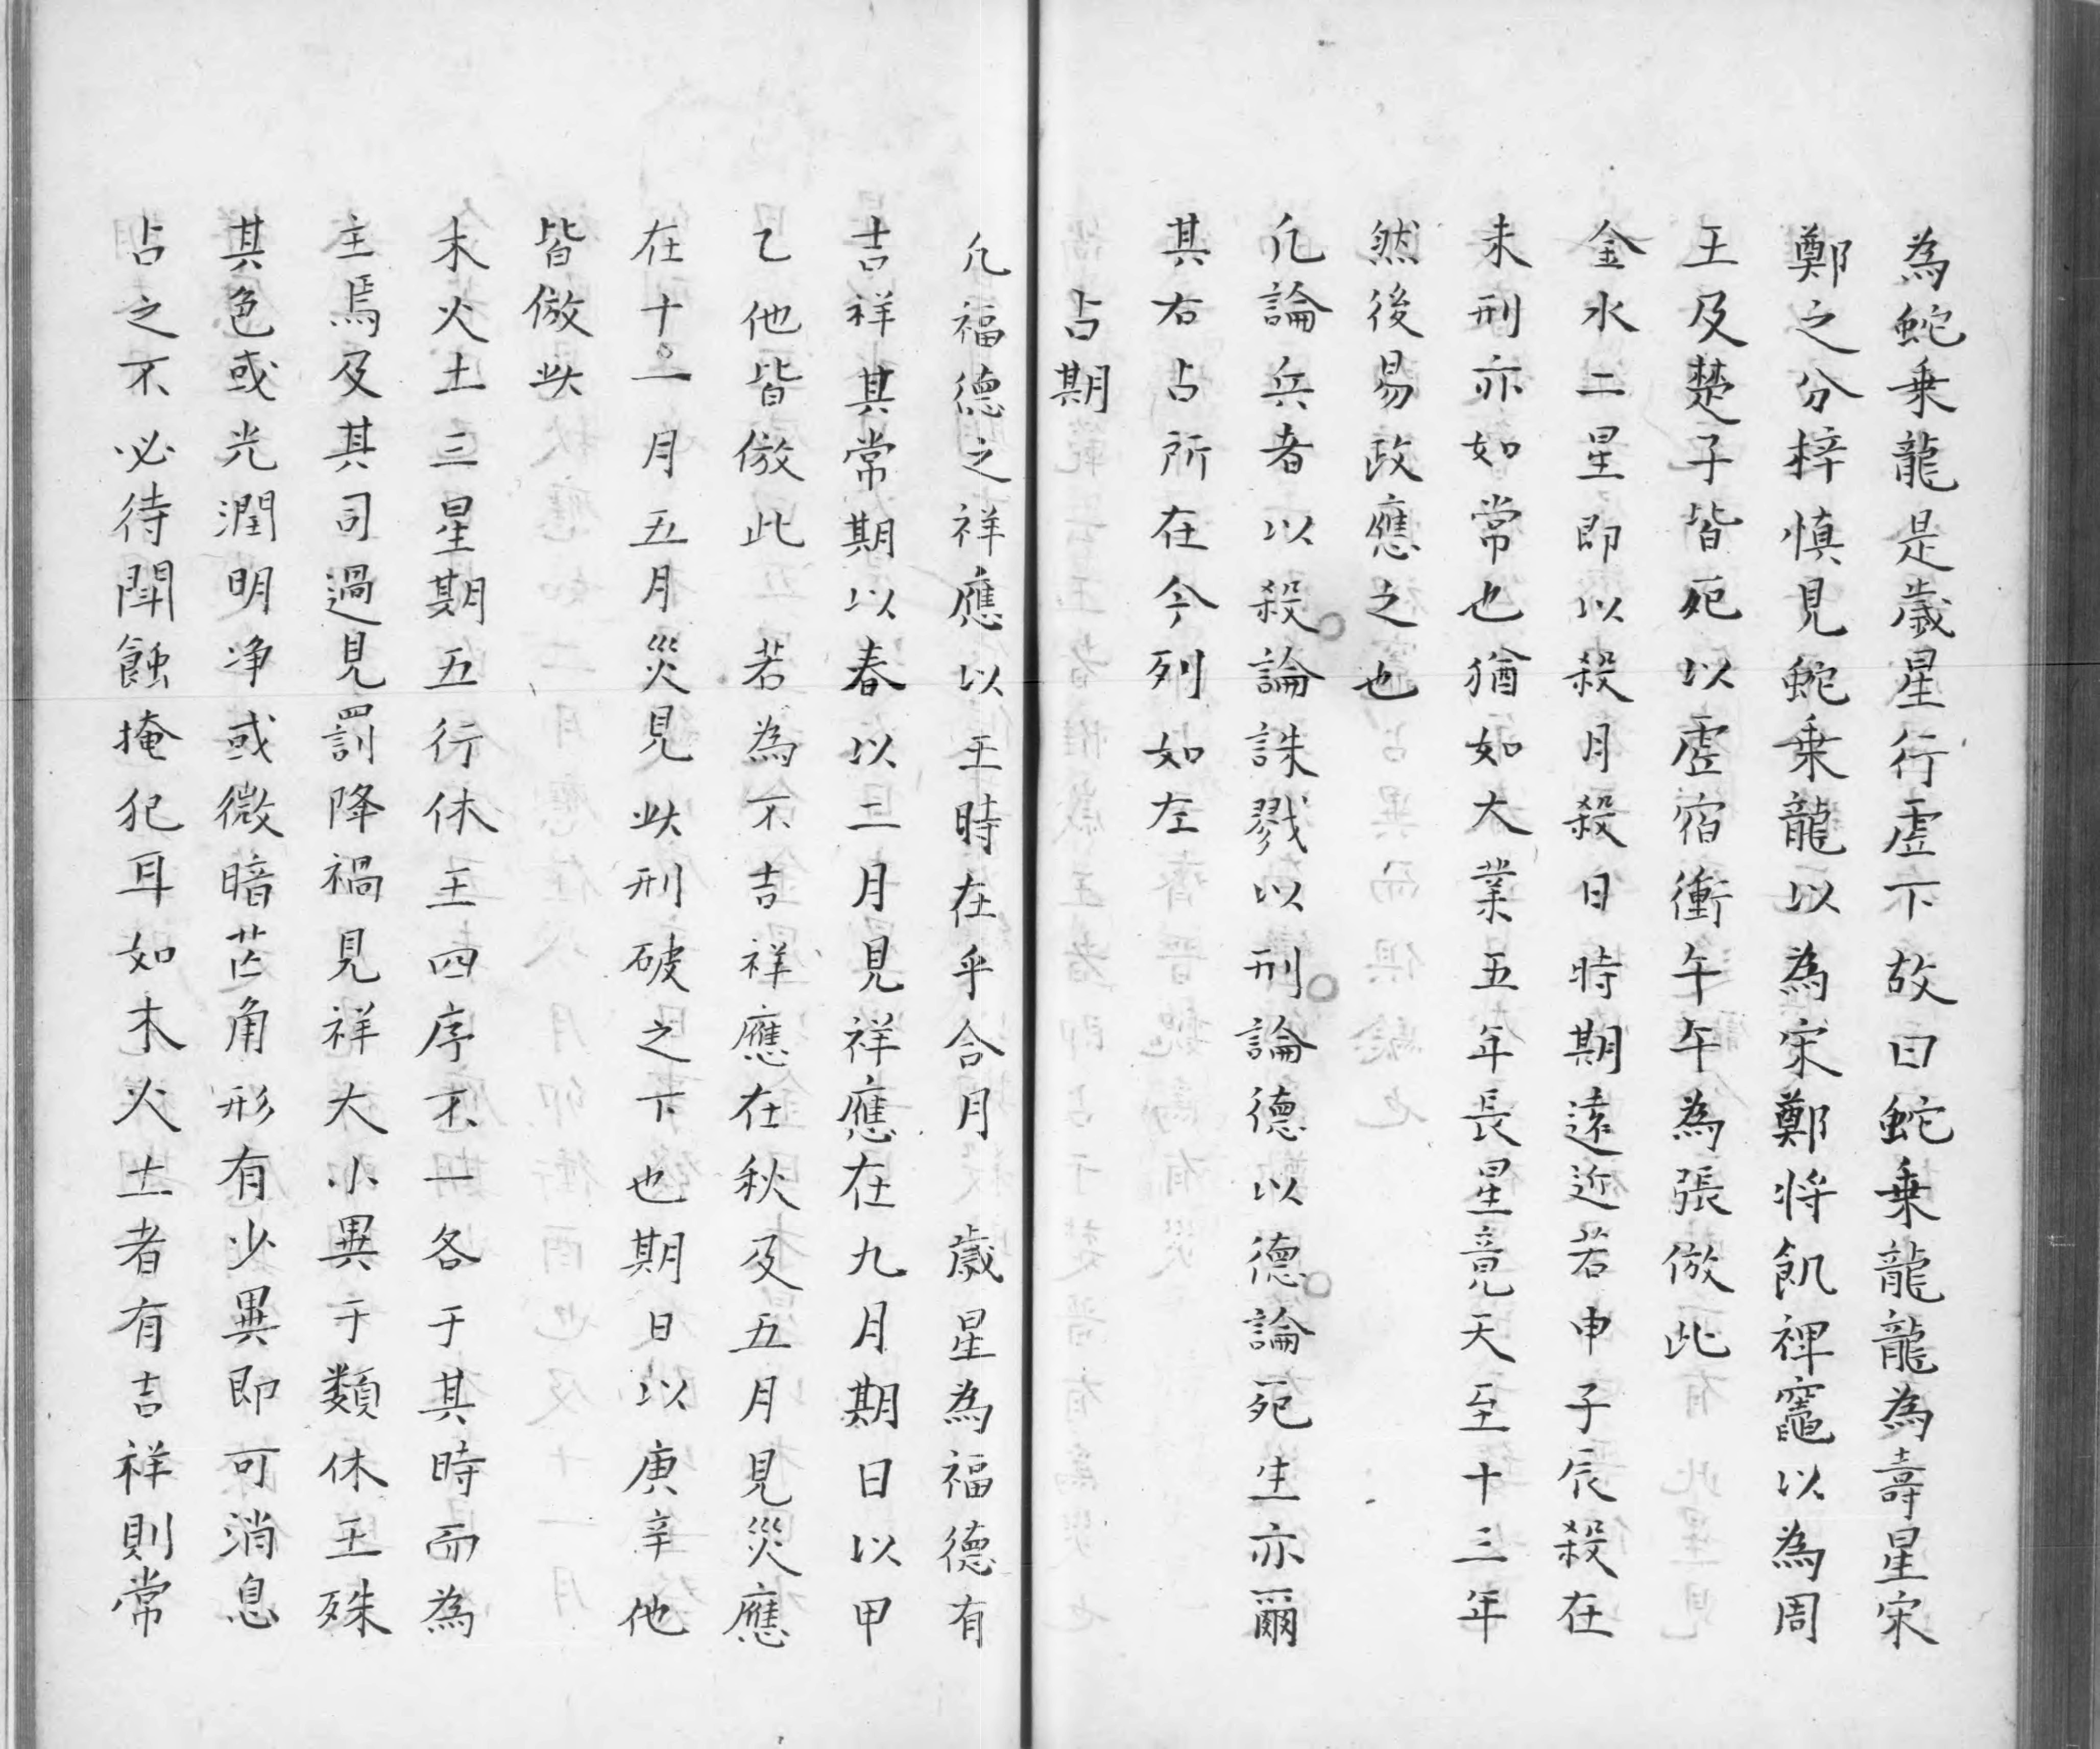 為蛇乗龍是歲星行虛下故曰蛇乗龍龍為壽星宋
鄭之分梓慎見蛇乗龍以為宋鄭将飢裨竈以為周
王及楚子皆死以虛宿衝午午為張倣此
金水二星即以殺月殺日時期遠近若申子辰殺在
未刑亦如常也猶如大業五年長星竟天至十三年
然後易政應之也
凢論兵者以殺論誅戮以刑論德以德論死生亦爾
其右占所在今列如左
占期
凢福德之祥應以王時在乎合月 歲星為福德有
吉祥其常期以春以二月見祥應在九月期日以甲
乙他皆倣此 若為不吉祥應在秋及五月見災應
在十一月五月災見此刑破之下也期日以庚辛他
皆倣此
木火土三星期五行休王四序不一各于其時而為
主焉及其司過見罰降禍見祥大小異于類休王殊
其色或光潤明净或微暗芒角形有少異即可消息
占之不必待鬪蝕掩犯耳如木火土者有吉祥則常